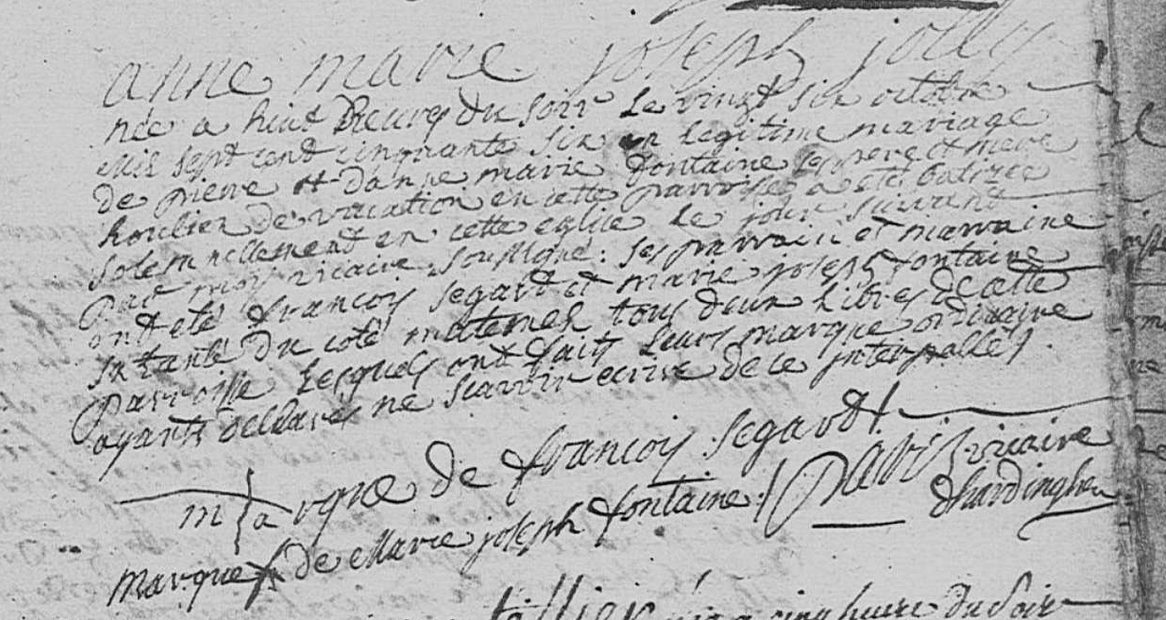 anne marie joseph jolly
née a huit heures du soir le vingt six octobre
mis sept cent cinquante six en legitime mariage
de pierre et danne marie fontaine ses pere et mere
houlier de vacation en cette parroise a eté batisée
solemnellement en cette eglise le jour suivant
par moy vicaire soussigné: ses parrain et marraine
ont eté francois segard et marie joseph fontaine
sa tante du coté maternel tous deux libres de cette
parroisse lesquels ont faits leurs marque ordinaire
ayants declarés ne scavoir ecrire de ce interpellés
marque de francois segard
marque de Marie joseph fontaine
vicaire
dhardinghen
née a cinq heure du soir